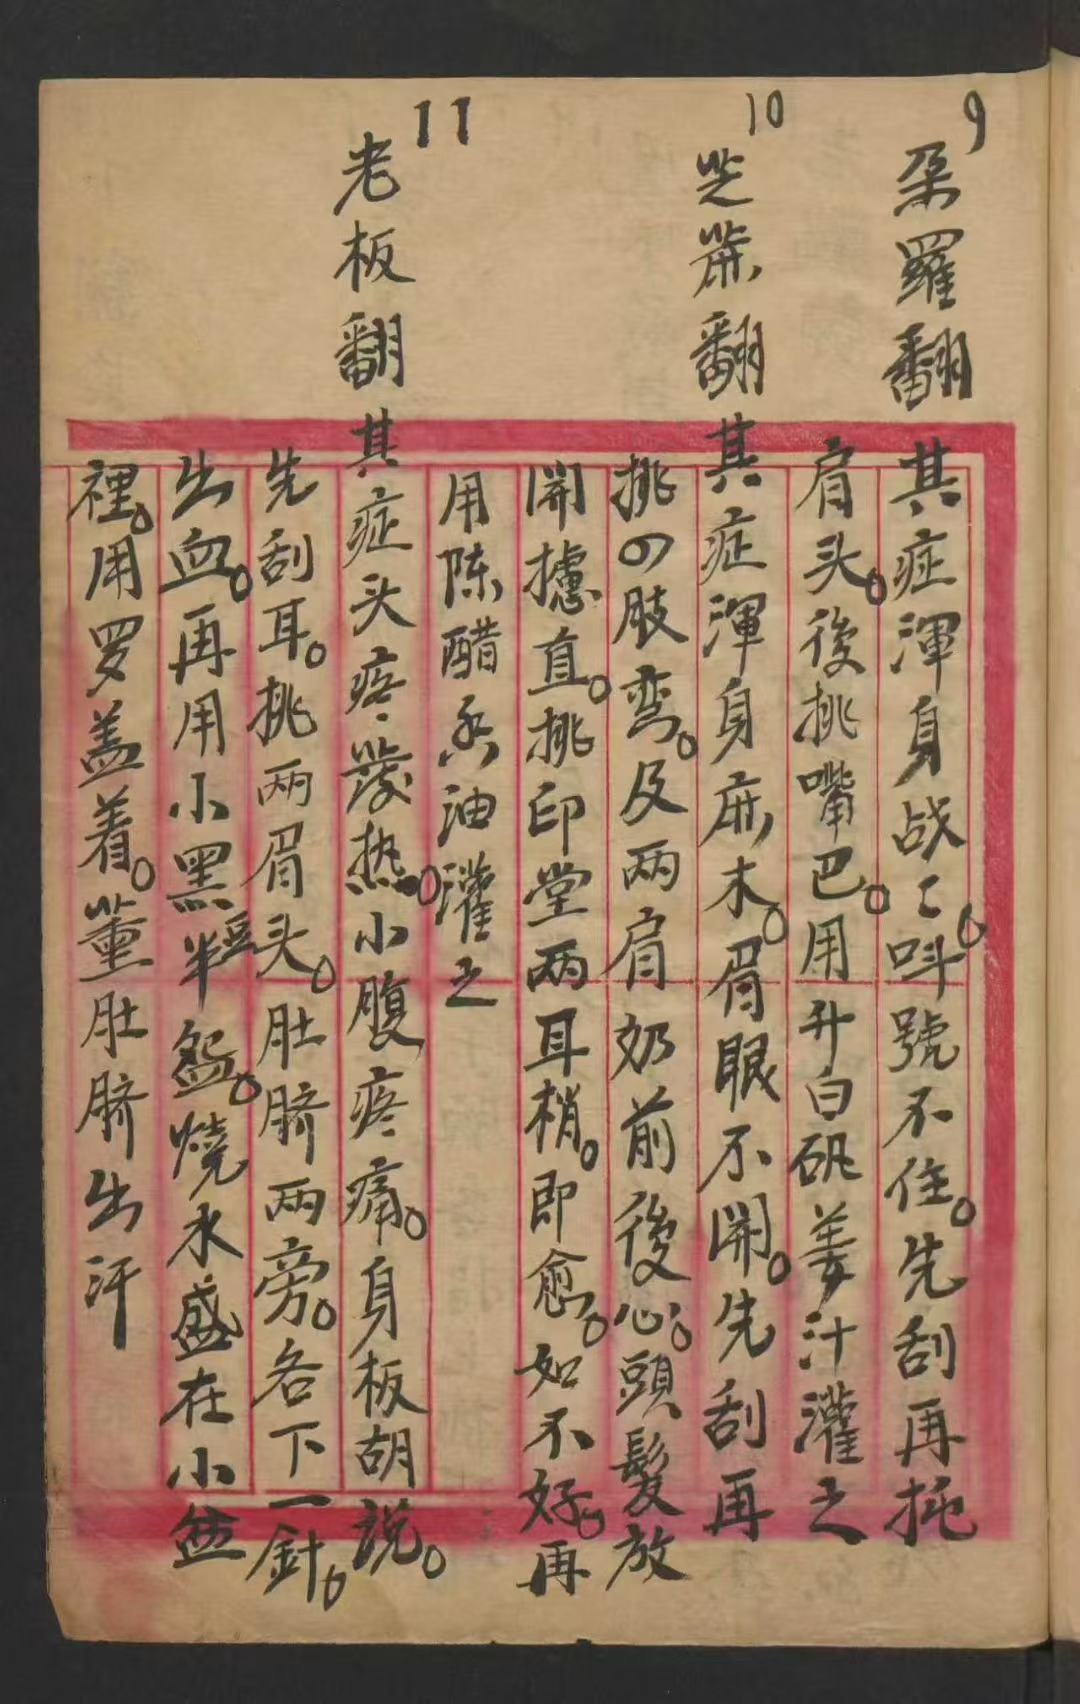 9
朶羅翻其症渾身战〻。呌號不住。先刮再挑
肩头。後挑嘴巴。用升白矾姜汁灌之
10
芝蔴翻其症渾身麻木。眉眼不開。先刮再
挑四肢弯。及两肩奶前後心。頭髮放
開攄直。挑印堂两耳梢。即愈。如不好。再
用陈醋香油灌之
11
老板翻其症头疼發热。小腹疼痛。身板胡說。
先刮耳。挑两眉头。肚脐两旁。各下一針。
出血。再用小黑豆半碗。燒水盛在小盆
裡。用罗盖着。薰肚脐出汗